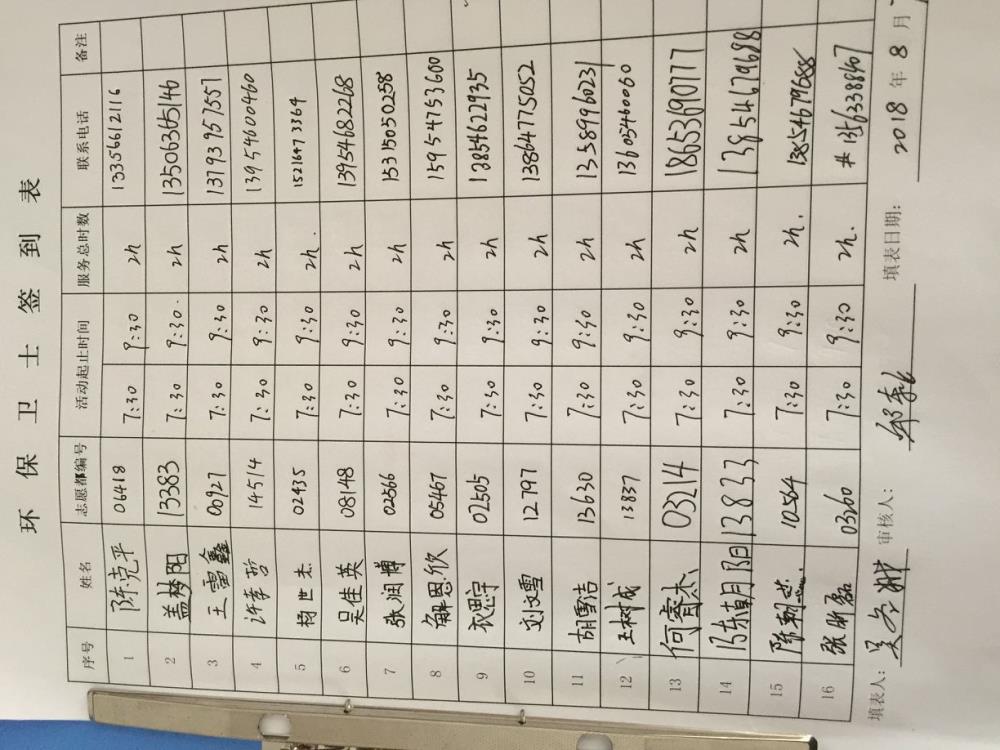 环保卫士签到表
序号 姓名 志愿都编号 活动起止时间 服务总时数 联系电话 备注
1 陈克平 06418 7:30 9:30 2h 13356612116
2 盖梦阳 13383 7:30 9:30. 2h 13506365146
3 王雷鑫 00927 7:30 9:30 2h 13793957557
4 许孝哲 14574 7:30 9:30 2h 13954600460
5 杨世杰 02435 7:30 9:30 2h. 15216473364
6 吴佳英 08148 7:30 9:30 2h 13954682268
7 张润博 02566 7:30 9:30 2h 15315050258
8 解恩欣 05467 7:30 9:30 2h 15954753600
9 衣思宇 02505 7:30 9:30 2h 13854622935
10 刘文雪 12797 7:30 9:30 2h 13864775052
11 胡雪洁 13630 7:30 9:30 2h 13589960231
12 王树成 13837 7:30 9:30 2h 13605460060
13 何睿杰 03214 7:30 9:30 2h 18653690777
14 陈朝阳 13833 7:30 9:30 2h 13854679688
15 陈 10564 7:30 9:30 2h. 13854679688
16 张 磊 03260 7:30 9:30 2h. 13563388407
填表人: 吴 审核人: 填表日期: 2018 年 8 月